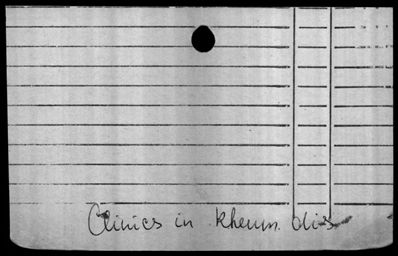 Clinics in Rheum. dis